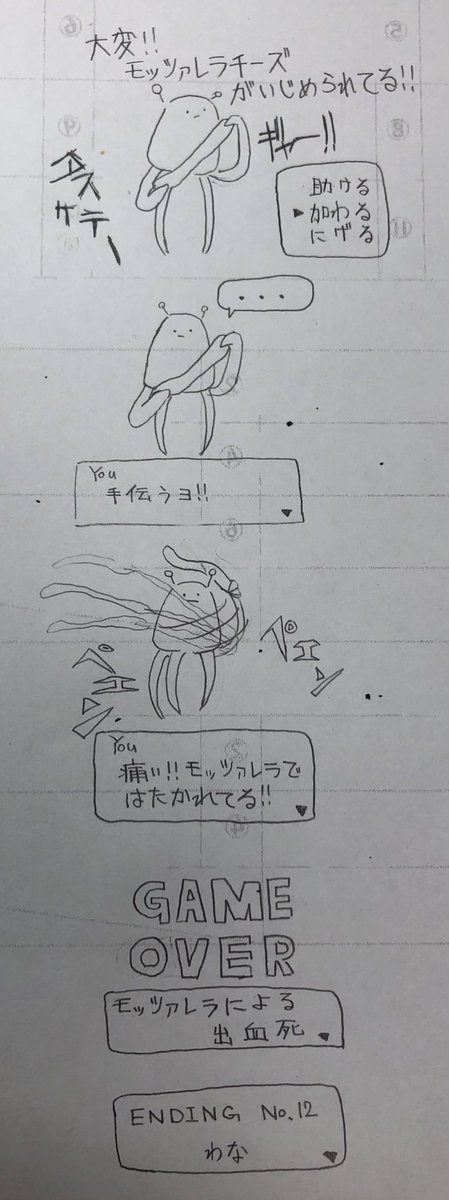 大変!!
モッツァレラチーズ
がいじめられてる!!
ギャー!!
タスケテー
助ける
▶加わる
にげる
・・・
You
手伝うヨ!!
ペェン
ペェン
You
痛い!!モッツァレラで
はたかれてる!!
GAME
OVER
モッツァレラによる
出血死
ENDING No.12
わな